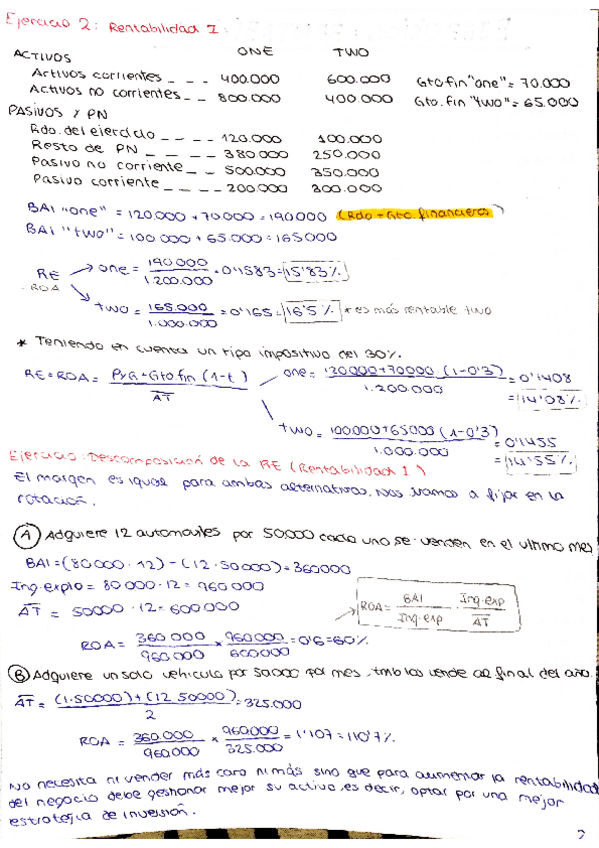 Ejercicio 2: Rentabilidad I
ONE TWO
ACTIVOS
Activos corrientes _ _ _ 400.000 600.000 Gto fin "one" = 70.000
Activos no corrientes _ _ 800.000 400.000 Gto. fin "two" = 65.000
PASIVOS Y PN
Rdo. del ejercicio _ _ _ _ 120.000 100.000
Resto de PN _ _ _ _ 380.000 250.000
Pasivo no corriente _ _ 500.000 350.000
Pasivo corriente _ _ _ _ 200.000 300.000
BAI "one" = 120.000 + 70000 = 190000 (Rdo + Gto. financieros)
BAI "two" = 100 000 + 65.000 = 165000
RE ROA → one = 190 000 / 1.200.000 = 0'1583 = 15'83%
→ two = 165.000 / 1.000.000 = 0'165 = 16'5% * es más rentable two
* Teniendo en cuenta un tipo impositivo del 30%.
RE = ROA = PyG + Gto. fin (1-t) / AT one = 120000 + 70000 (1-0'3) / 1.200.000 = 0'1408 = 14'08%
two = 100000 + 65000 (1-0'3) / 1.000.000 = 0'1455 = 14'55%
Ejercicio: Descomposición de la RE (Rentabilidad 1)
El margen es igual para ambas alternativas. Nos vamos a fijar en la
rotación.
A Adquiere 12 automóviles por 50000 cada uno se venden en el ultimo mes
BAI = (80000 · 12) - (12 · 50000) = 360000
Ing. explo = 80 000 · 12 = 960000
AT = 50000 · 12 = 600000
ROA = BAI / Ing. exp · Ing. exp / AT
ROA = 360 000 / 960 000 × 960000 / 600000 = 0'6 = 60%
B Adquiere un solo vehiculo por 50000 por mes, tmb los vende al final del año.
AT = (1·50000) + (12·50000) / 2 = 325.000
ROA = 360.000 / 960000 × 960000 / 325.000 = 1'107 = 110'7%
No necesita ni vender más caro ni más sino que para aumentar la rentabilidad
del negocio debe gestionar mejor su activo, es decir, optar por una mejor
estrategia de inversión.
2